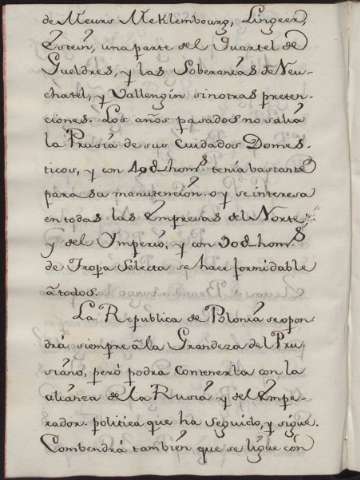 de Meurs Meklembourg, Lingeen,
Estein, una parte del Quartel de
Gueldres, y las Soberanías de Neu-
chatel, y Vallengin sin otras preten-
ciones. Los años pasados no salia
la Prusia de sus Cuidados Domes-
ticos, y con 40d homs tenia bastante
para sa manutencion. oy se interesa
en todas las Empresas del Norte,
y del Ymperio, y con 90d homs
de Tropa Selecta se hace formidable
â todos.
La Republica de Polonia se opon
drá siempre â la Grandeza del Pru-
siáno, peró podrá contenerla con la
alianza de la Rusia y del Empe-
rador politica que ha seguido, y sigue.
Combendrá tambien que se ligue con